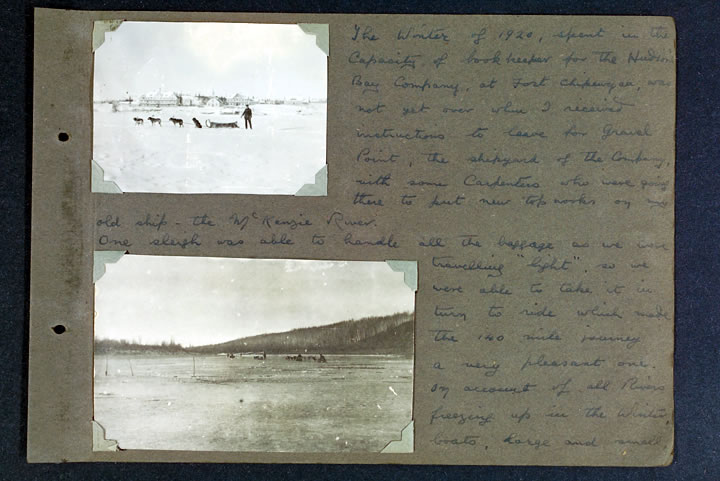 The Winter of 1920, spent in the
Capacity of bookkeeper for the Hudson
Bay Company, at Fort Chipewyan, was
not yet over when I received
instructions to leave for Gravel
Point, the shipyard of the Company,
with some Carpenters who were going
there to put new top works on
old ship - the McKenzie River.
One sleigh was able to handle all the baggage as we were
travelling "light", so we
were able to take it in
turn to ride which made
the 140 mile journey
a very pleasant one.
On account of all Rivers
freezing up in the Winter
boats, large and small